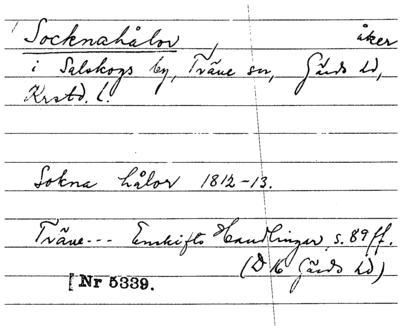 Socknahålor åker
i Salskogs by, Träne sn, Gärds hd,
Krstd. l.
Sokna hålor 1812-13.
Träne... Enskifts Handlingar s. 89 ff.
(D 16 Gärds hd)
[Nr 5339.